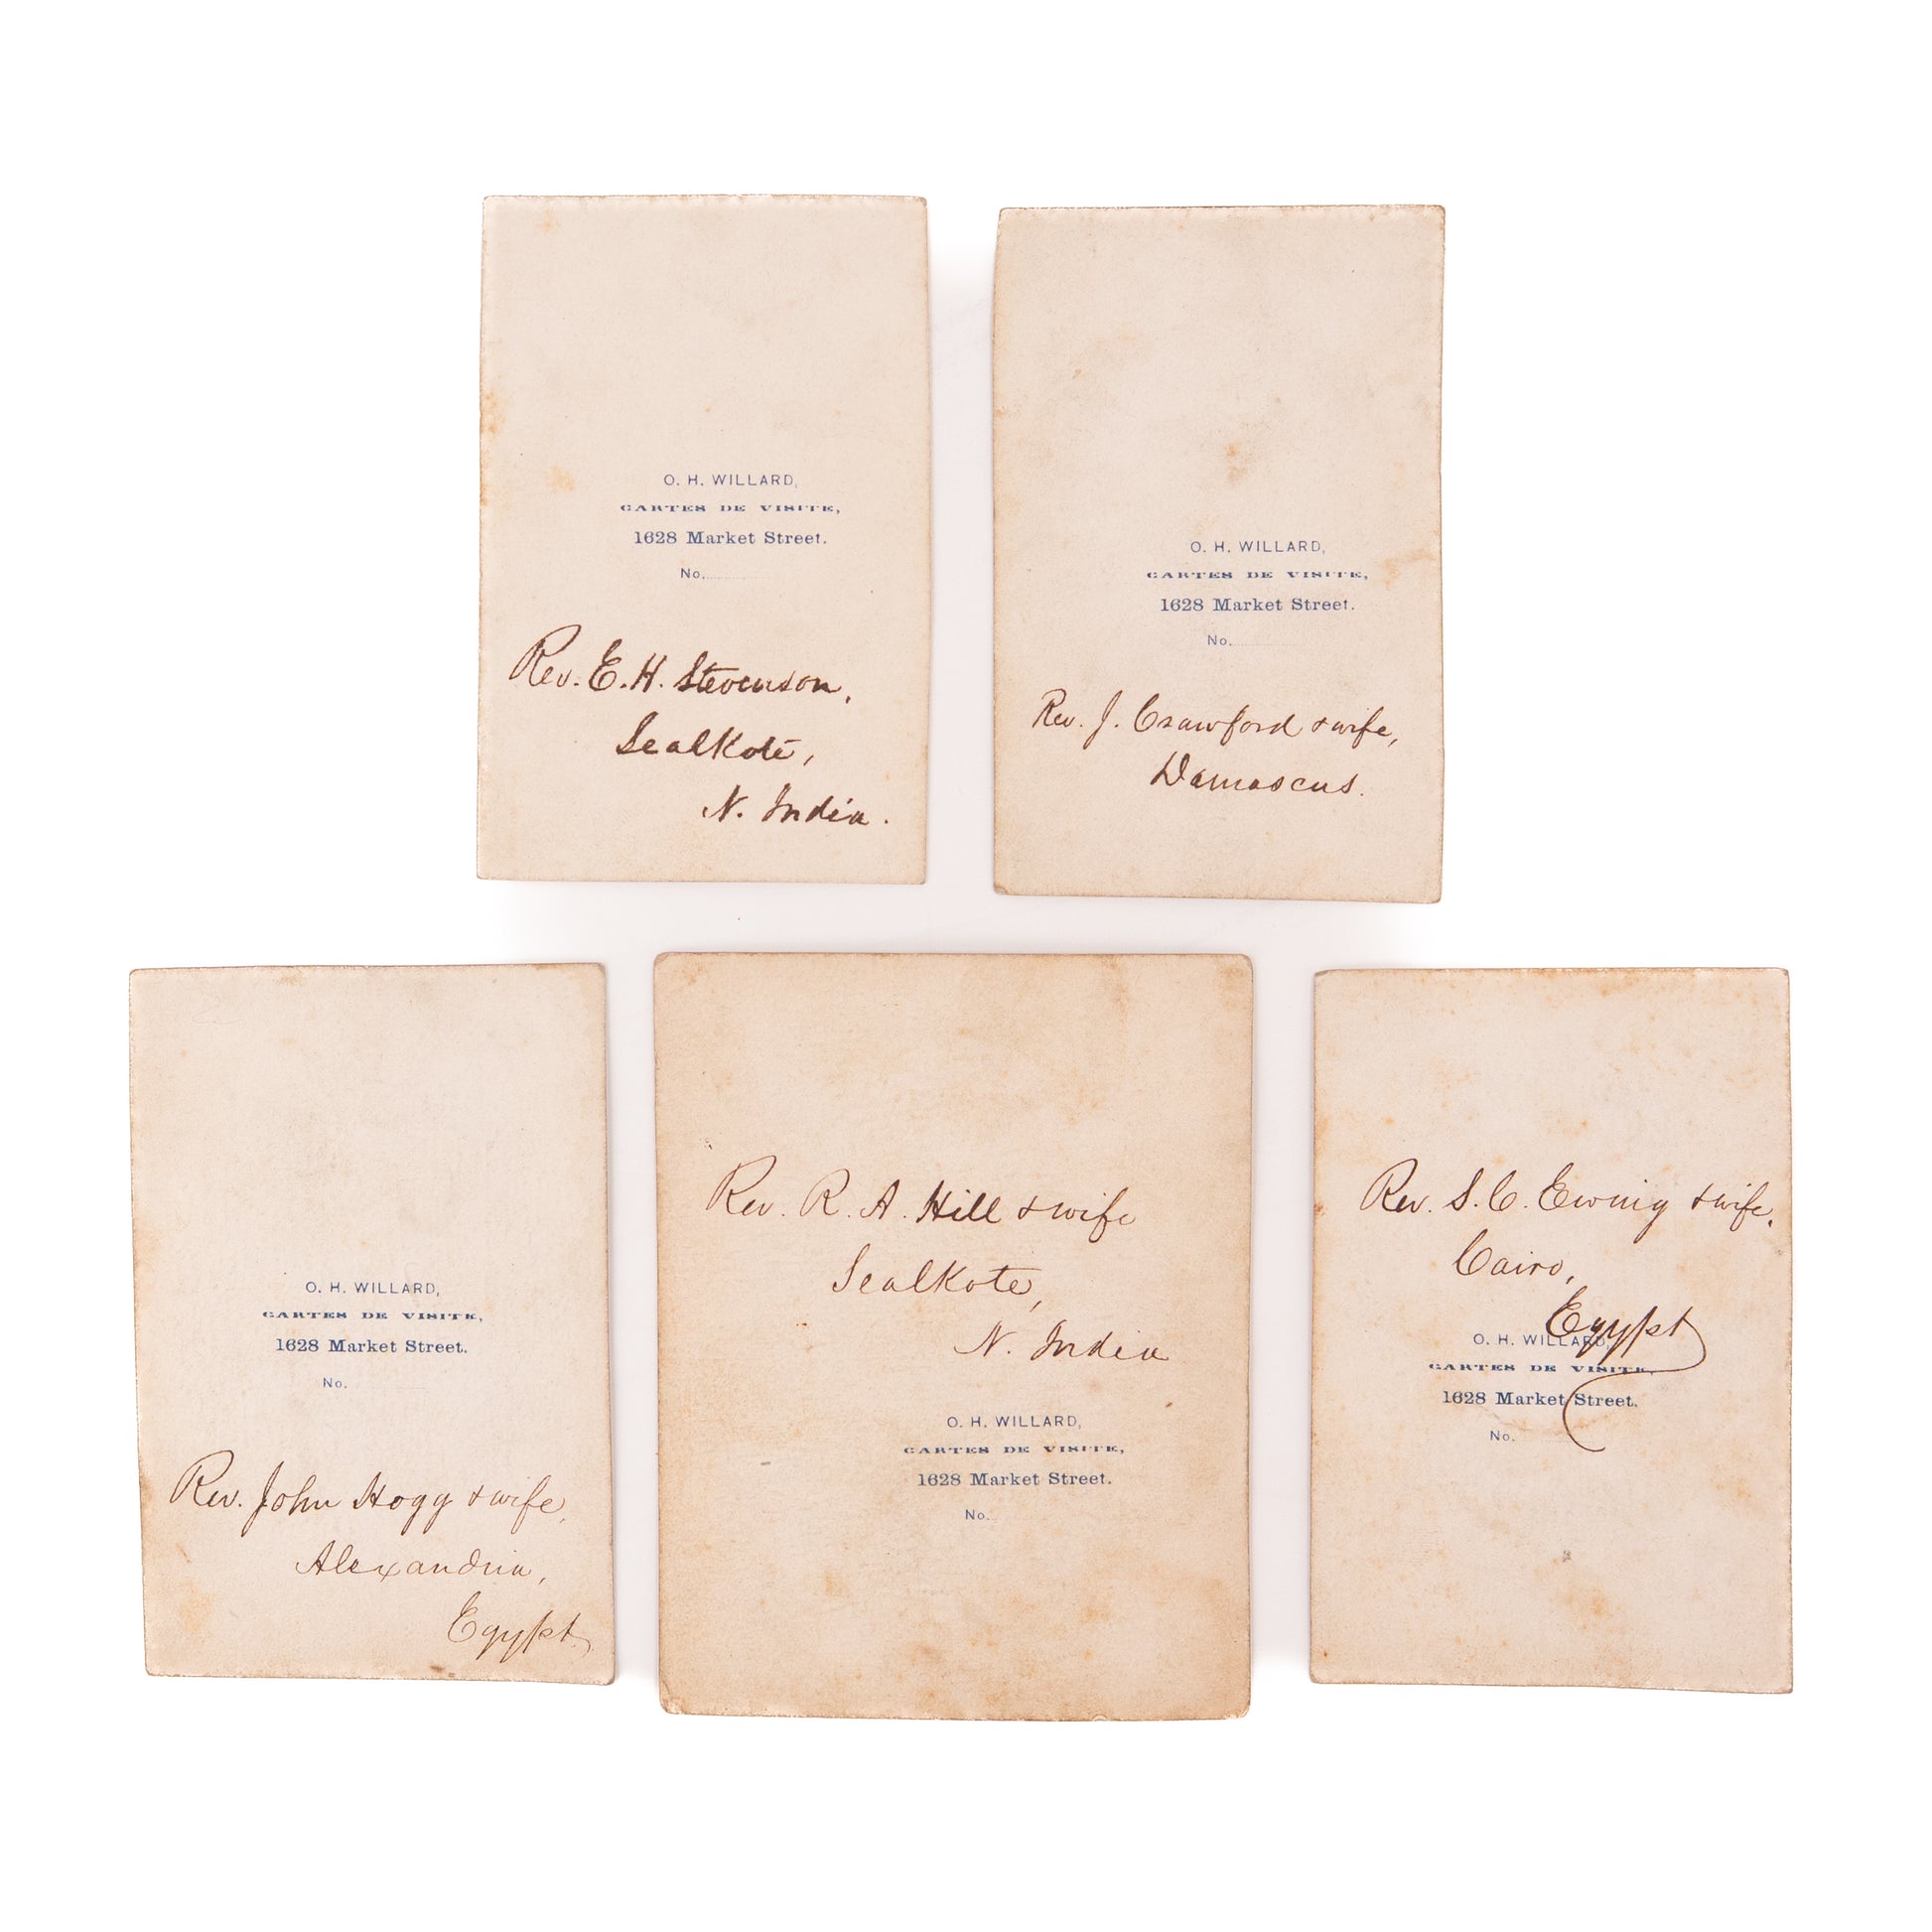 O. H. WILLARD,
CARTES DE VISITE,
1628 Market Street.
No.
Rev. E. H. Stevenson,
Sealkote,
N. India.
O. H. WILLARD,
CARTES DE VISITE,
1628 Market Street.
No.
Rev. J. Crawford & wife,
Damascus.
O. H. WILLARD,
CARTES DE VISITE,
1628 Market Street.
No.
Rev. John Hogg & wife,
Alexandria,
Egypt
Rev. R. A. Hill & wife
Sealkote,
N. India
O. H. WILLARD,
CARTES DE VISITE,
1628 Market Street.
No.
Rev. S. C. Ewing & wife,
Cairo,
Egypt
O. H. WILLARD,
CARTES DE VISITE,
1628 Market Street.
No.